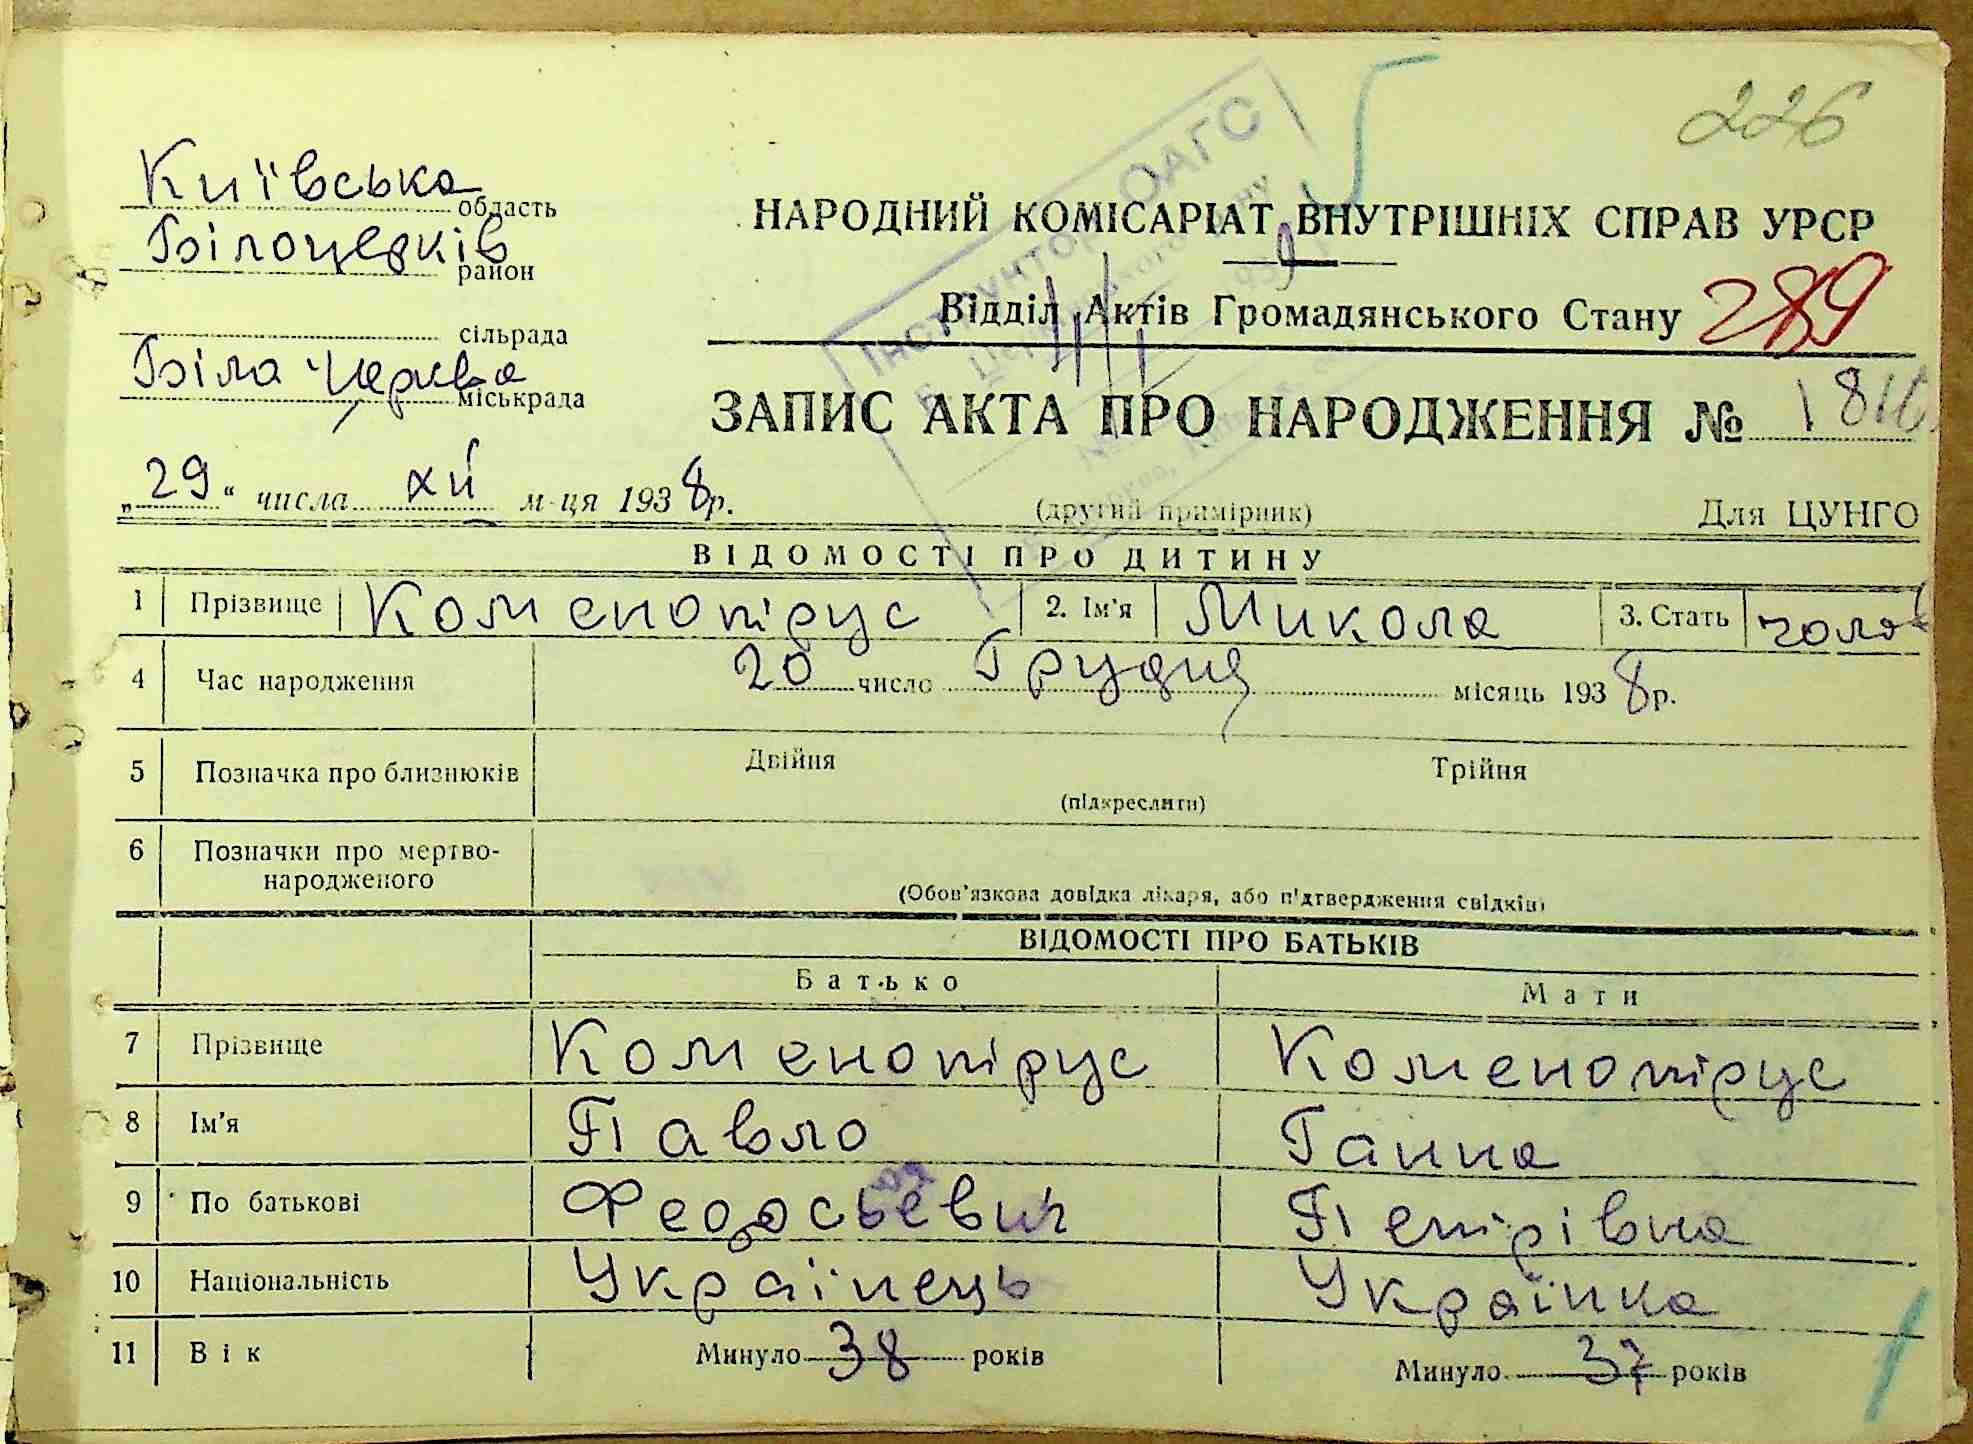 226
Київська область
Білоцерків район
сільрада
Біла Церква міськрада
НАРОДНИЙ КОМІСАРІАТ ВНУТРІШНІХ СПРАВ УРСР
Відділ Актів Громадянського Стану 289
ЗАПИС АКТА ПРО НАРОДЖЕННЯ №
„29“ числа XII м-ця 1938р.
(другий примірник)
Для ЦУНГО
ІНСТРУКТОР ОАГС
ВІДОМОСТІ ПРО ДИТИНУ
1 Прізвище Коменопірус 2. Ім'я Микола 3. Стать чолов
4 Час народження 20 число Грудня місяць 1938р.
5 Позначка про близнюків Двійня Трійня
(підкреслити)
6 Позначки про мертво-
народженого
(Обов'язкова довідка лікаря, або підтвердження свідків)
ВІДОМОСТІ ПРО БАТЬКІВ
Батько Мати
7 Прізвище Коменопірус Коменопірус
8 Ім'я Павло Ганна
9 По батькові Феодосьевич Петрівна
10 Національність Українець Українка
11 Вік Минуло 38 років Минуло 37 років